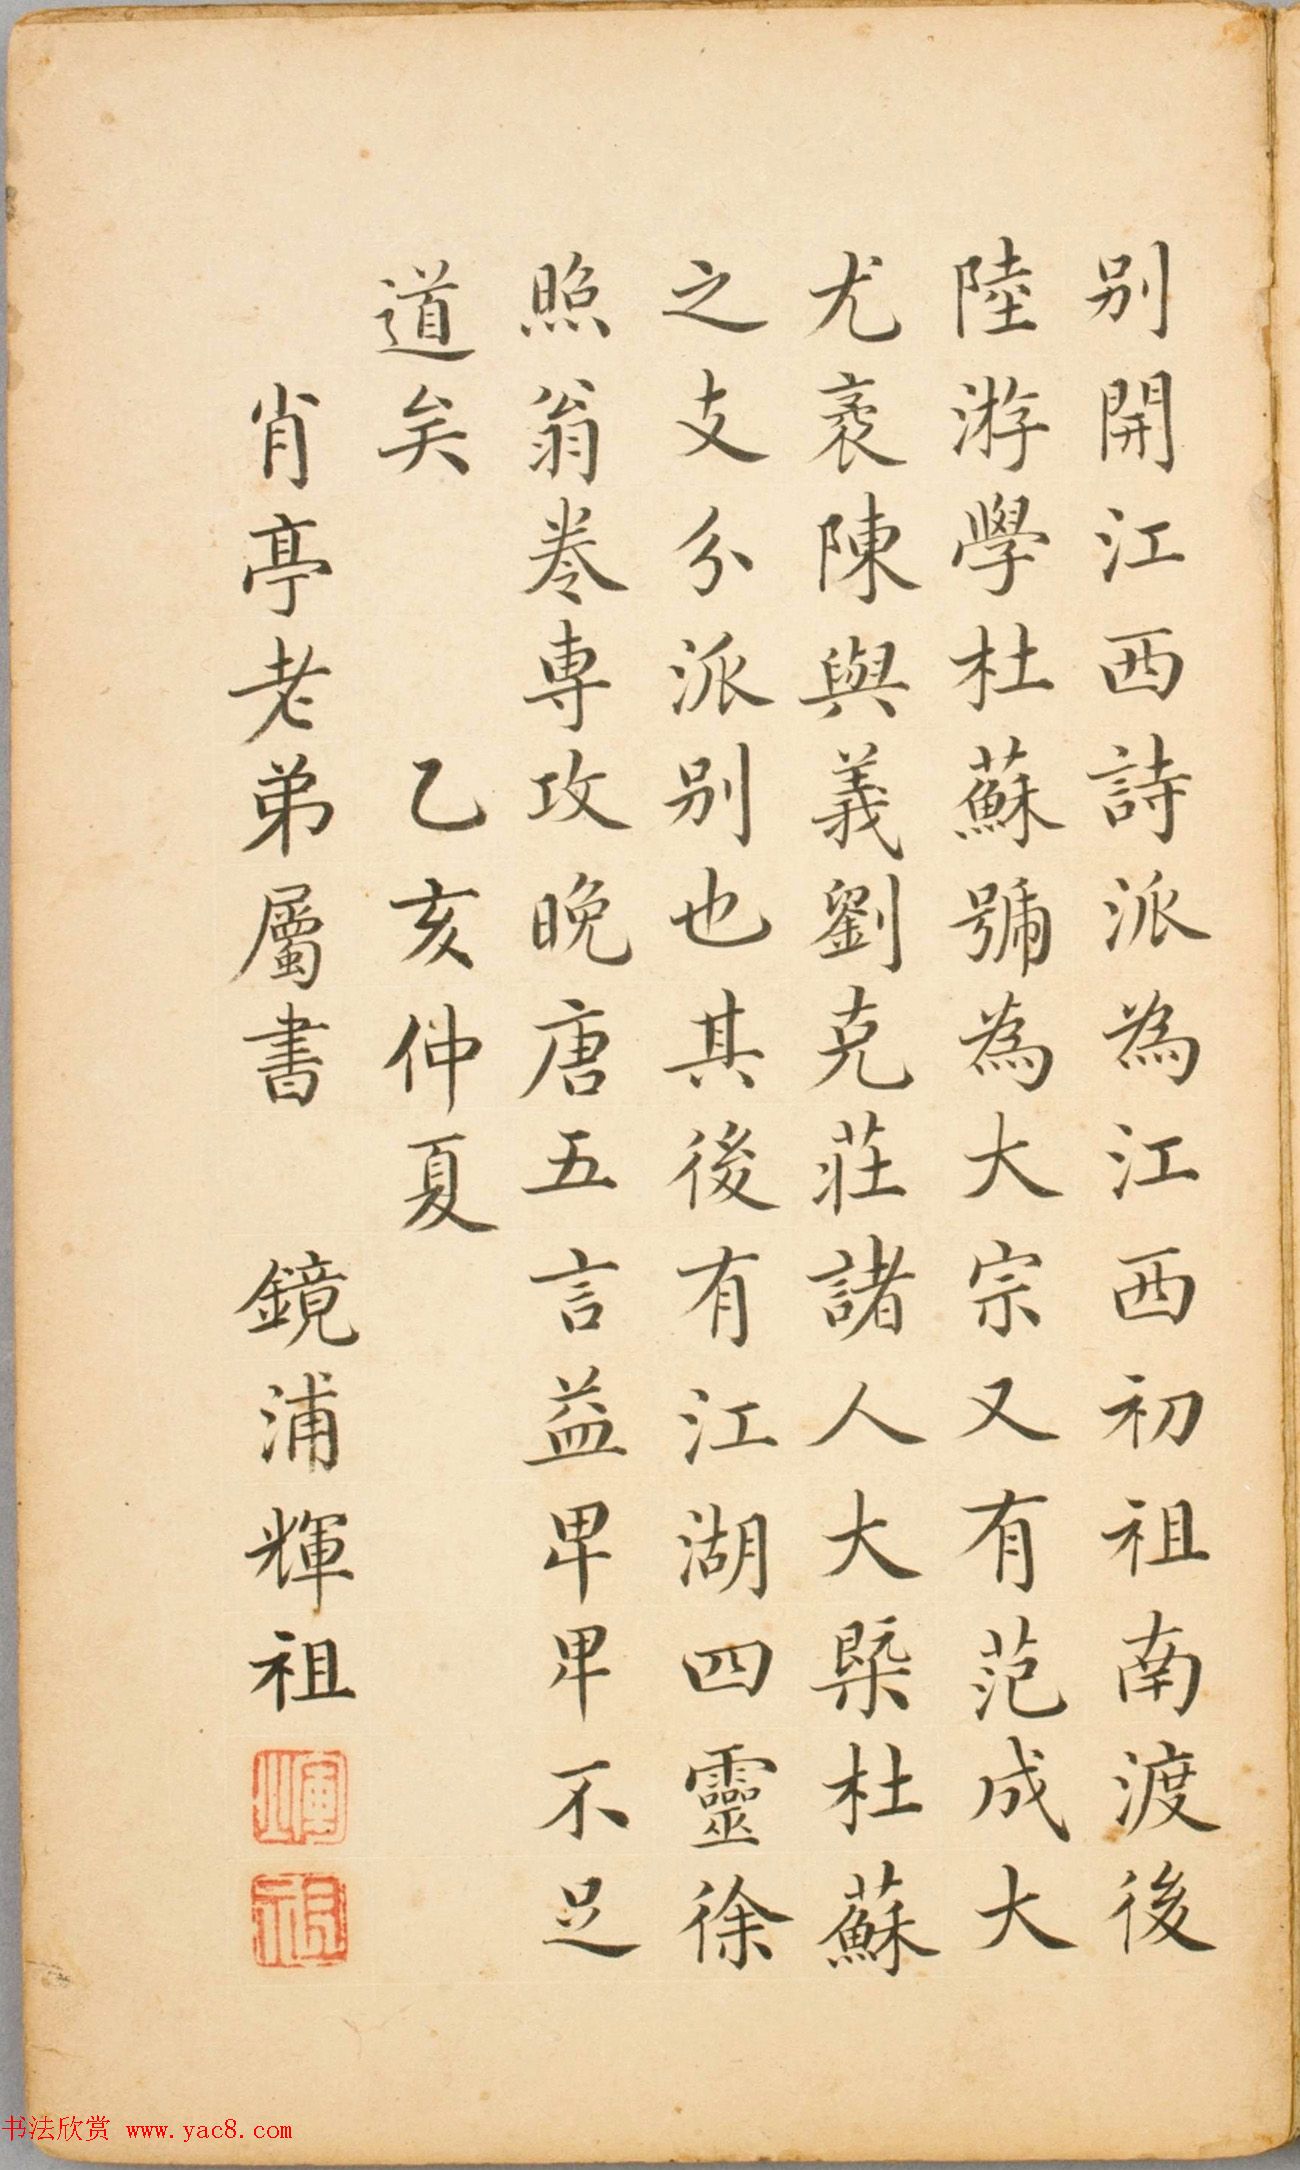 別開江西詩派為江西初祖南渡後
陸游學杜蘇號為大宗又有范成大
尤袤陳與義劉克莊諸人大槩杜蘇
之支分派別也其後有江湖四靈徐
照翁卷專攻晚唐五言益卑卑不足
道矣 乙亥仲夏
肖亭老弟屬書 鏡浦輝祖
祖
书法欣赏 www.yac8.com